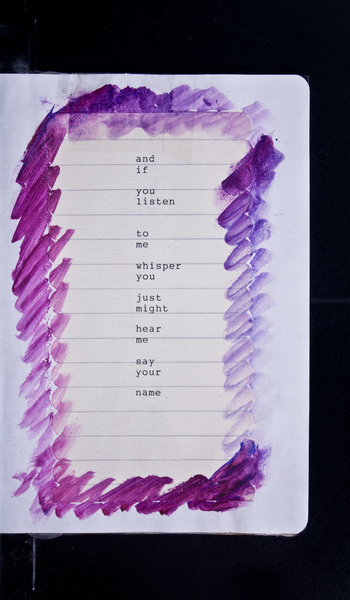 and
if
you
listen
to
me
whisper
you
just
might
hear
me
say
your
name